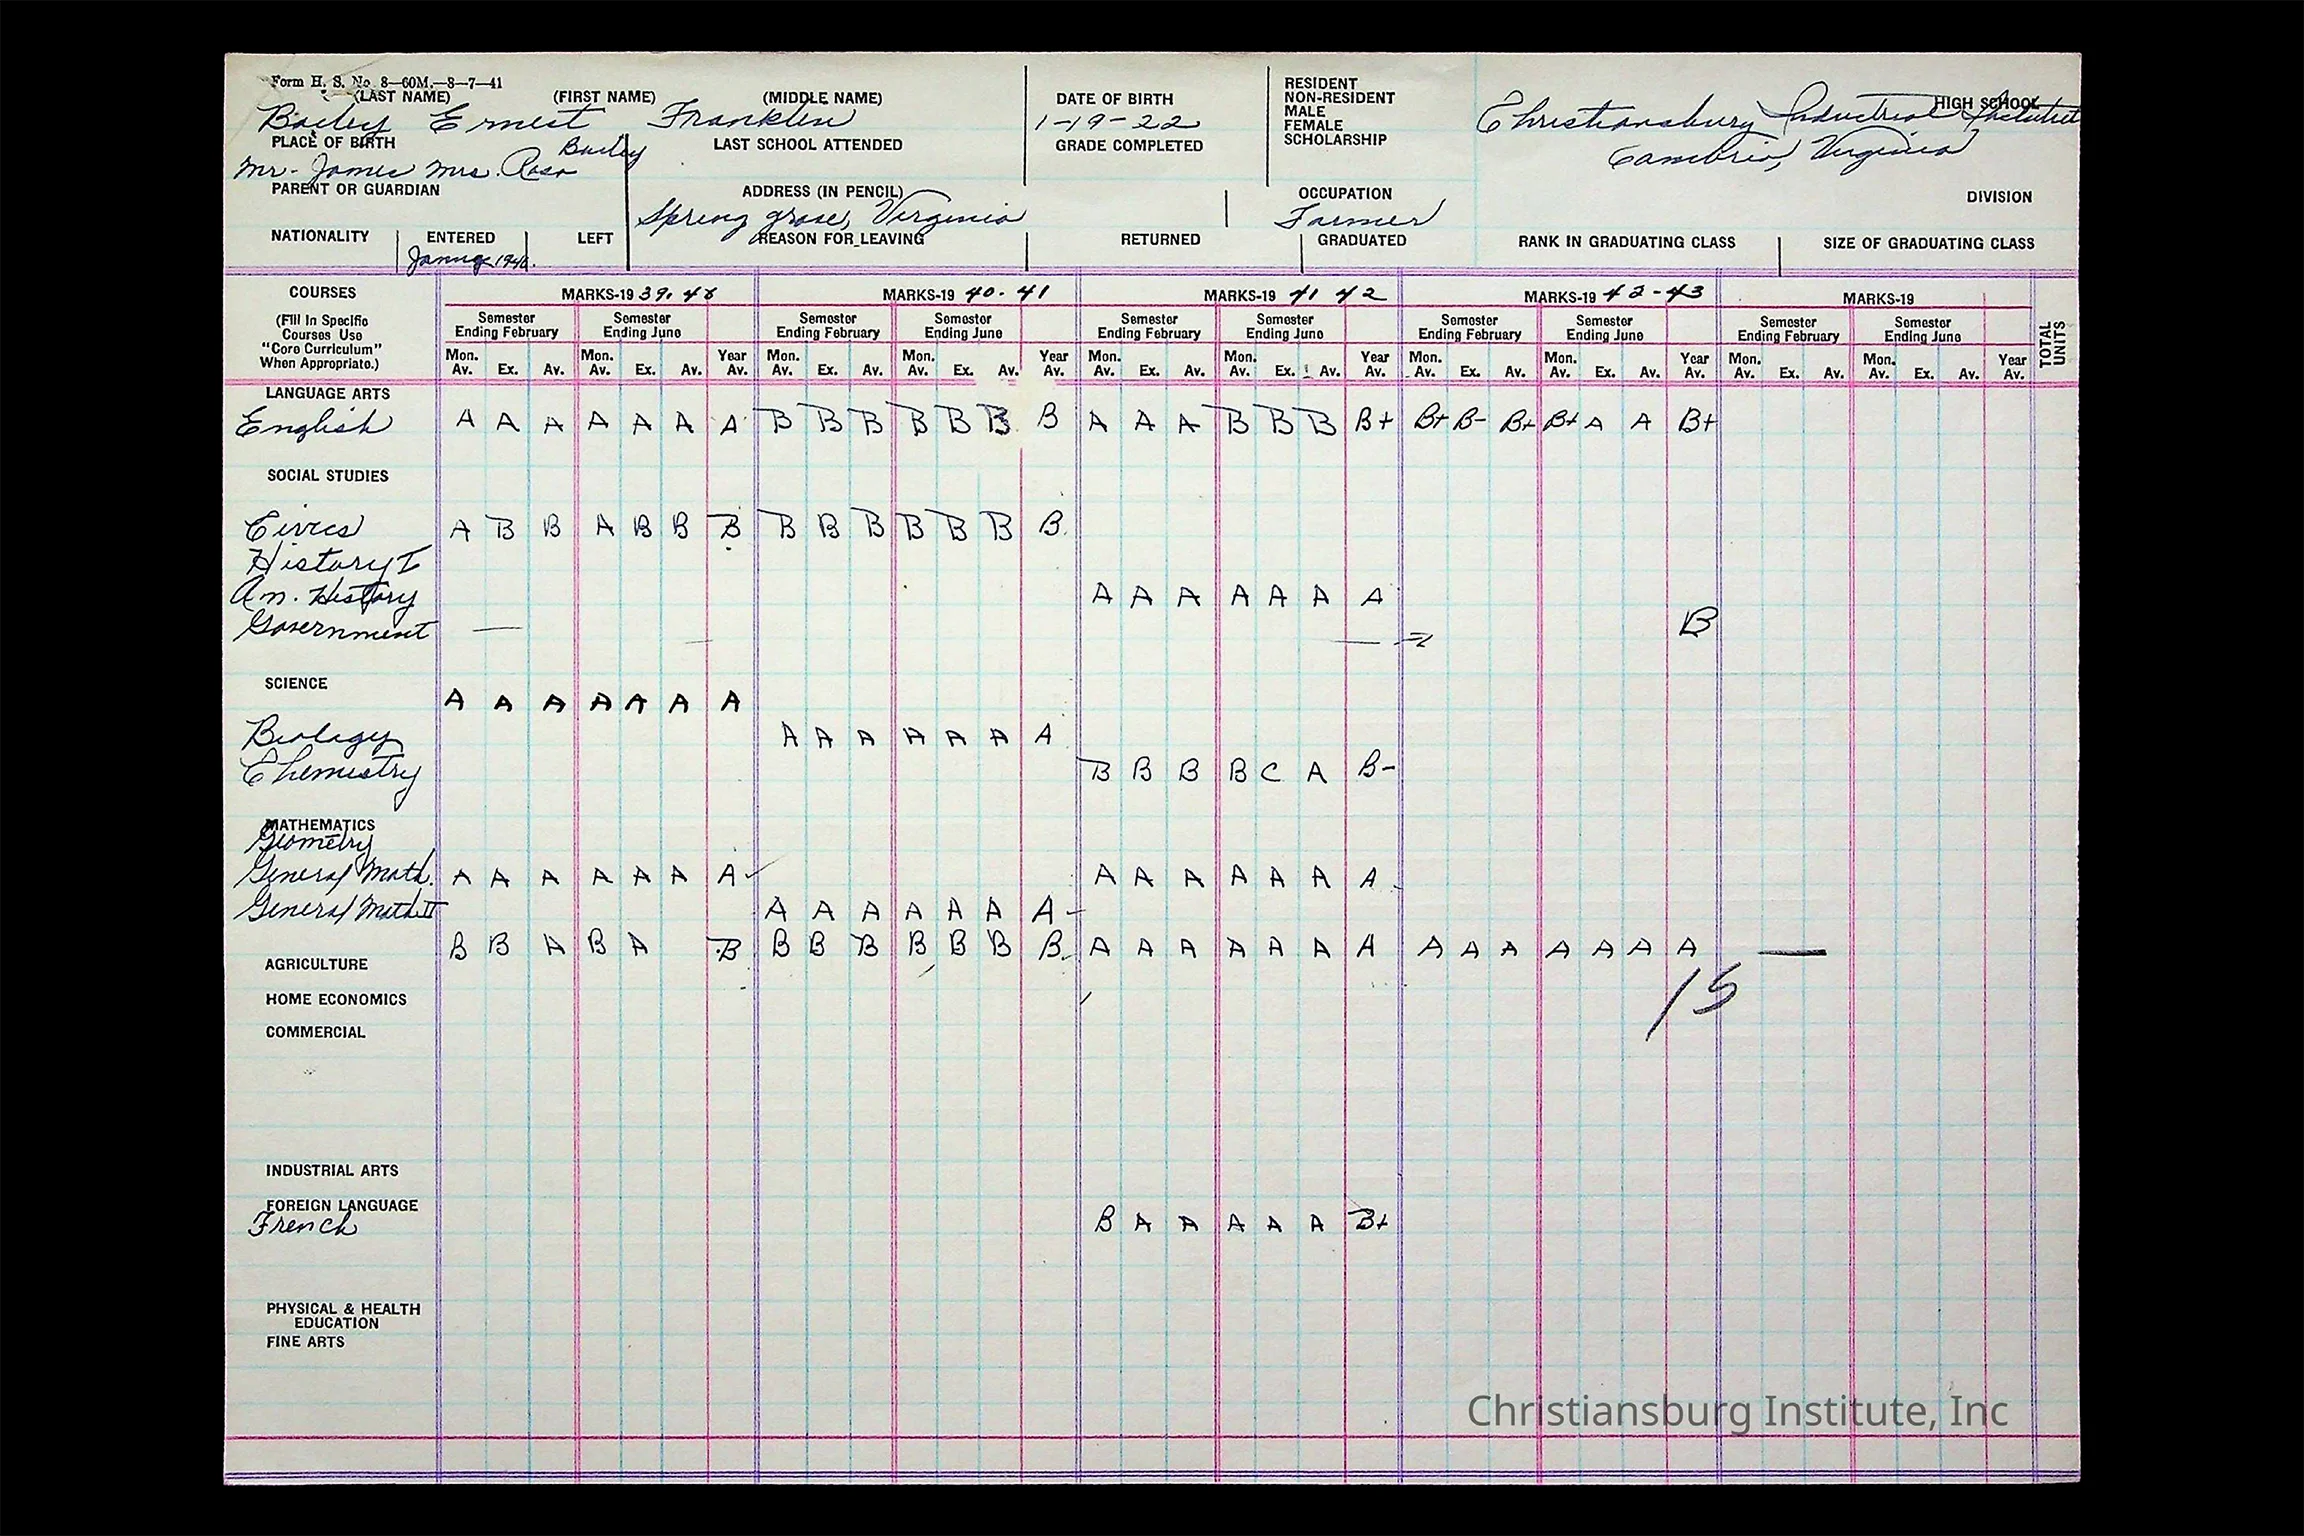 Form H. S. No. 8—60M.—8—7—41
(LAST NAME) (FIRST NAME) (MIDDLE NAME) DATE OF BIRTH RESIDENT
NON-RESIDENT
MALE
FEMALE
SCHOLARSHIP
HIGH SCHOOL
Bailey Ernest Franklin 1-19-22 Christiansburg Industrial Institute
PLACE OF BIRTH LAST SCHOOL ATTENDED GRADE COMPLETED
Cambria, Virginia
Mr. James Mrs. Rosa Bailey
PARENT OR GUARDIAN ADDRESS (IN PENCIL) OCCUPATION DIVISION
Spring grove, Virginia Farmer
NATIONALITY ENTERED LEFT REASON FOR LEAVING RETURNED GRADUATED RANK IN GRADUATING CLASS SIZE OF GRADUATING CLASS
COURSES MARKS-19 39. MARKS-19 40-41 MARKS-19 41 42 MARKS-19 42-43 MARKS-19
(Fill In Specific
Courses Use
"Core Curriculum"
When Appropriate.)
Semester Ending February Semester Ending June Semester Ending February Semester Ending June Semester Ending February Semester Ending June Semester Ending February Semester Ending June Semester Ending February Semester Ending June TOTAL UNITS
Mon. Av. Ex. Av. Mon. Av. Ex. Av. Year Av. Mon. Av. Ex. Av. Mon. Av. Ex. Av. Year Av. Mon. Av. Ex. Av. Mon. Av. Ex. Av. Year Av. Mon. Av. Ex. Av. Mon. Av. Ex. Av. Year Av. Mon. Av. Ex. Av. Mon. Av. Ex. Av. Year Av.
LANGUAGE ARTS
English A A A A A A A B B B B B B B A A A B B B B+ B+ B- B+ B+ A A B+
SOCIAL STUDIES
Civics A B B A B B B B B B B B B B
History I
Am. History A A A A A A A
Government B
SCIENCE A A A A A A A
Biology A A A A A A A
Chemistry B B B B C A B-
MATHEMATICS
Geometry
General Math. A A A A A A A A A A A A A A
General Math II A A A A A A A
B B A B A B B B B B B B B A A A A A A A A A A A A A A
AGRICULTURE
15
HOME ECONOMICS
COMMERCIAL
INDUSTRIAL ARTS
FOREIGN LANGUAGE
French B A A A A A B+
PHYSICAL & HEALTH
EDUCATION
FINE ARTS
Christiansburg Institute, Inc